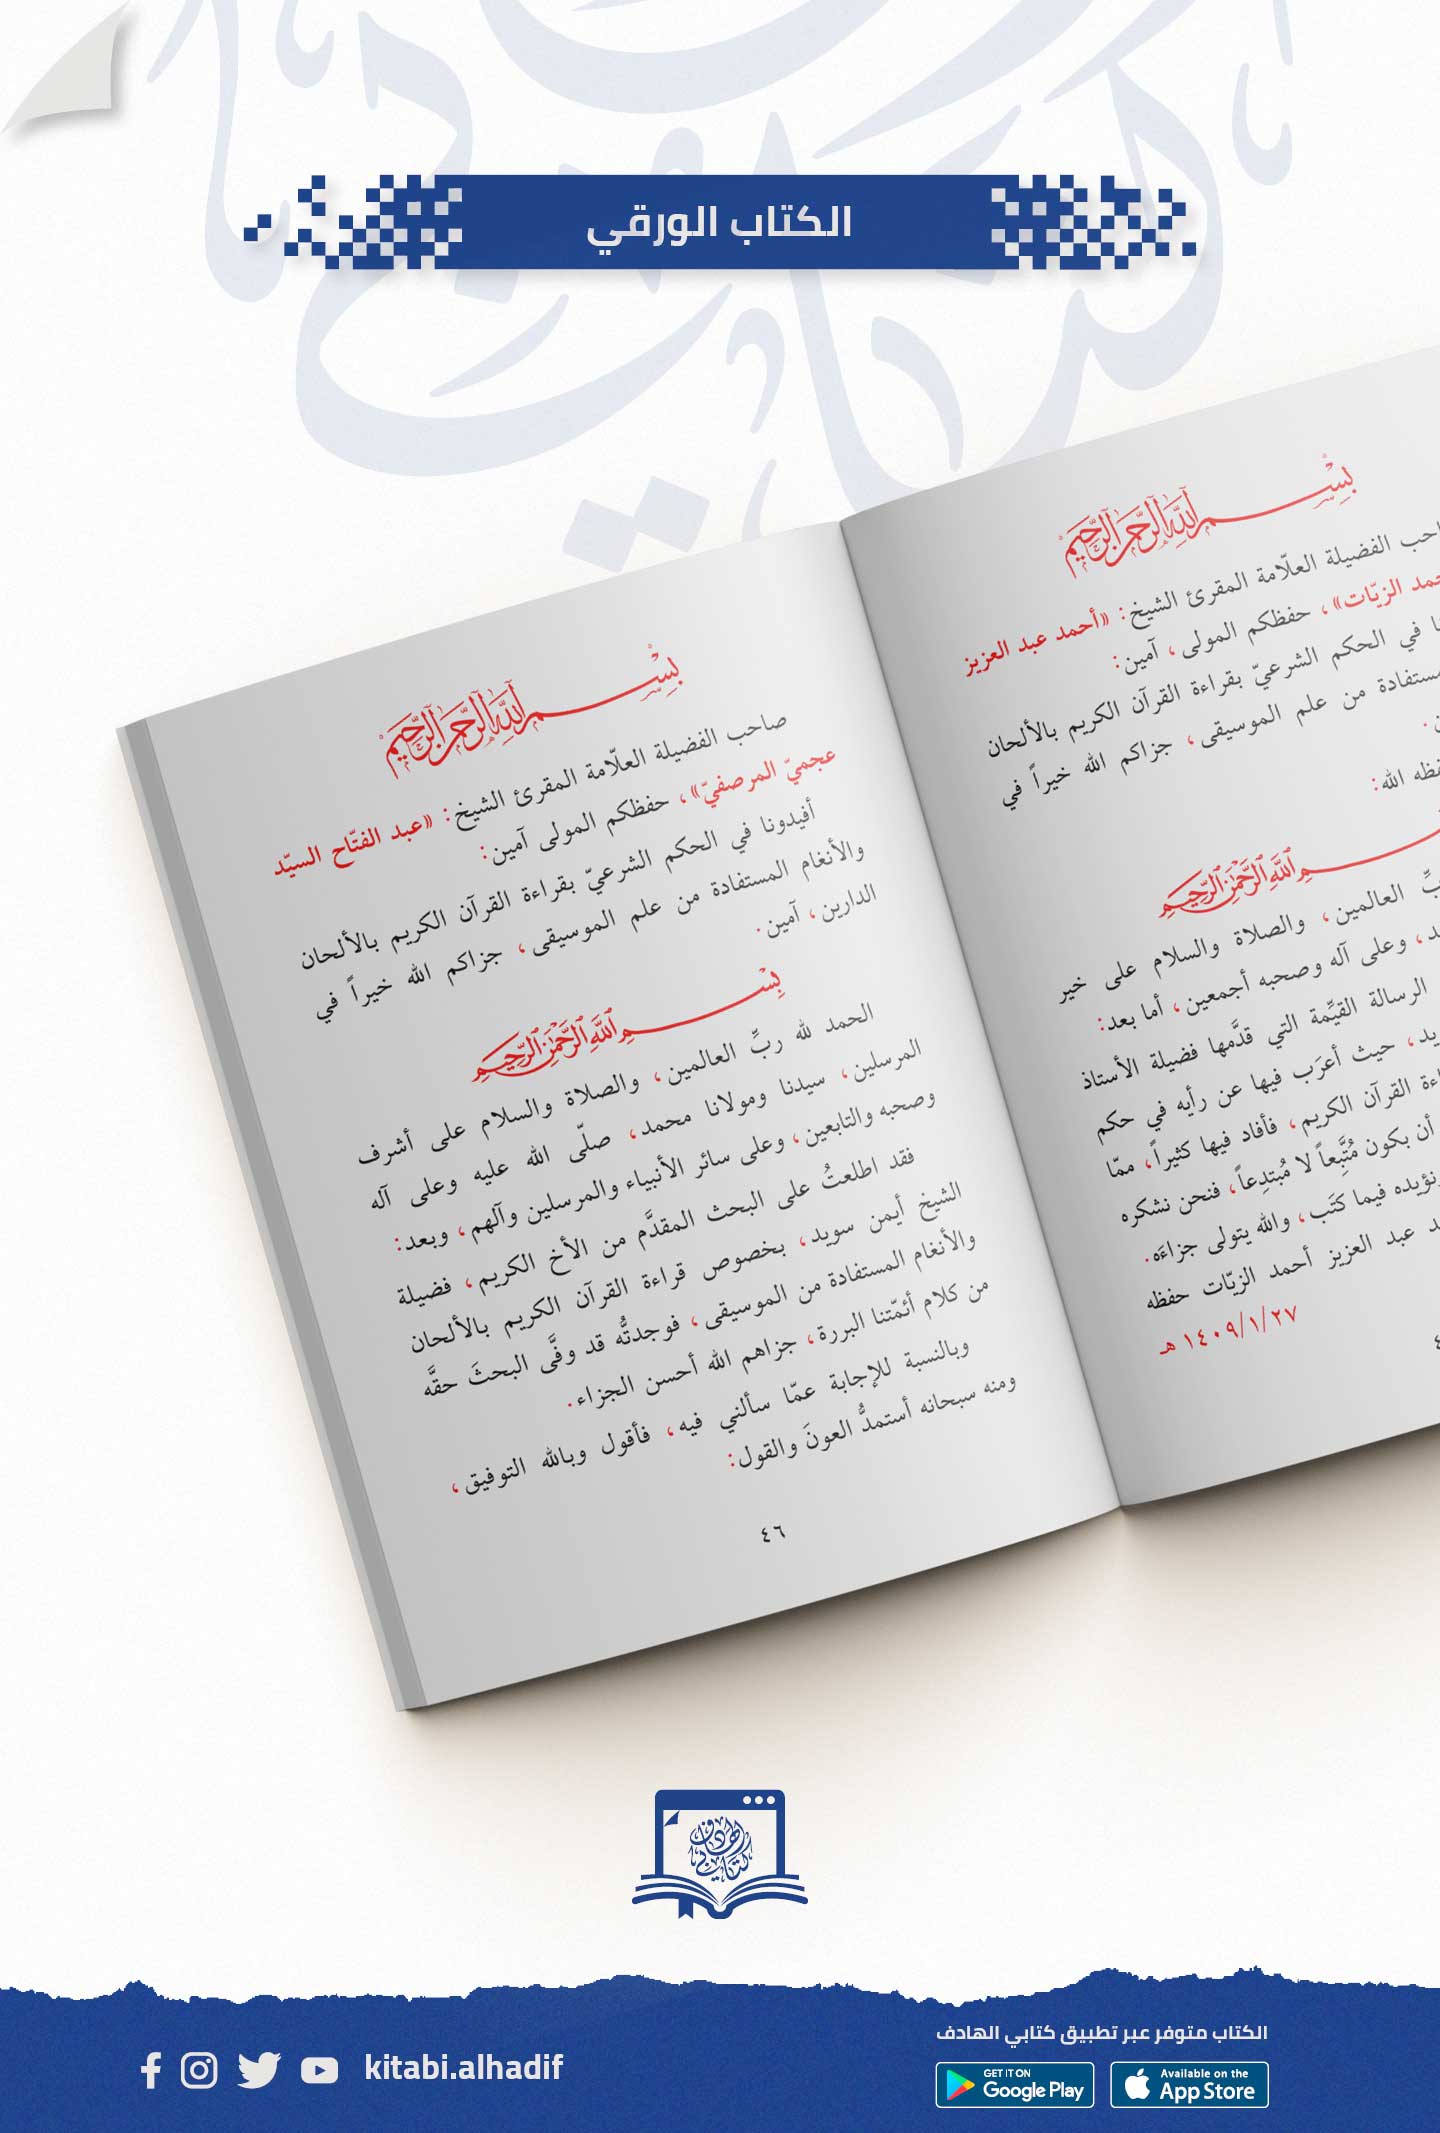 الكتاب الورقي
بِسْمِ اللَّهِ الرَّحْمَنِ الرَّحِيمِ
صاحب الفضيلة العلّامة المقرئ الشيخ: «أحمد عبد العزيز
الزيّات»، حفظكم المولى، آمين:
في الحكم الشرعيّ بقراءة القرآن الكريم بالألحان
من علم الموسيقى، جزاكم الله خيراً في
الله:
اللَّهِ الرَّحْمَنِ الرَّحِيمِ
العالمين، والصلاة والسلام على خير
وعلى آله وصحبه أجمعين، أما بعد:
الرسالة القيِّمة التي قدَّمها فضيلة الأستاذ
حيث أعرَب فيها عن رأيه في حكم
القرآن الكريم، فأفاد فيها كثيراً، ممّا
أن يكون مُتَّبِعاً لا مُبتدِعاً، فنحن نشكره
ونؤيده فيما كتَب، والله يتولى جزاءَه.
عبد العزيز أحمد الزيّات حفظه
١٤٠٩/١/٢٧ هـ
بِسْمِ اللَّهِ الرَّحْمَنِ الرَّحِيمِ
صاحب الفضيلة العلّامة المقرئ الشيخ: «عبد الفتّاح السيّد
عجميّ المرصفيّ»، حفظكم المولى آمين:
أفيدونا في الحكم الشرعيّ بقراءة القرآن الكريم بالألحان
والأنغام المستفادة من علم الموسيقى، جزاكم الله خيراً في
الدارين، آمين.
بِسْمِ اللَّهِ الرَّحْمَنِ الرَّحِيمِ
الحمد لله ربِّ العالمين، والصلاة والسلام على أشرف
المرسلين، سيدنا ومولانا محمد، صلّى الله عليه وعلى آله
وصحبه والتابعين، وعلى سائر الأنبياء والمرسلين وآلهم، وبعد:
فقد اطلعتُ على البحث المقدَّم من الأخ الكريم، فضيلة
الشيخ أيمن سويد، بخصوص قراءة القرآن الكريم بالألحان
والأنغام المستفادة من الموسيقى، فوجدتُّه قد وفَّى البحثَ حقَّه
من كلام أئمّتنا البررة، جزاهم الله أحسن الجزاء.
وبالنسبة للإجابة عمّا سألني فيه، فأقول وبالله التوفيق،
ومنه سبحانه أستمدُّ العونَ والقول:
٤٦
كتابي الهادف
الكتاب متوفر عبر تطبيق كتابي الهادف
kitabi.alhadif
GET IT ON
Google Play
Available on the
App Store